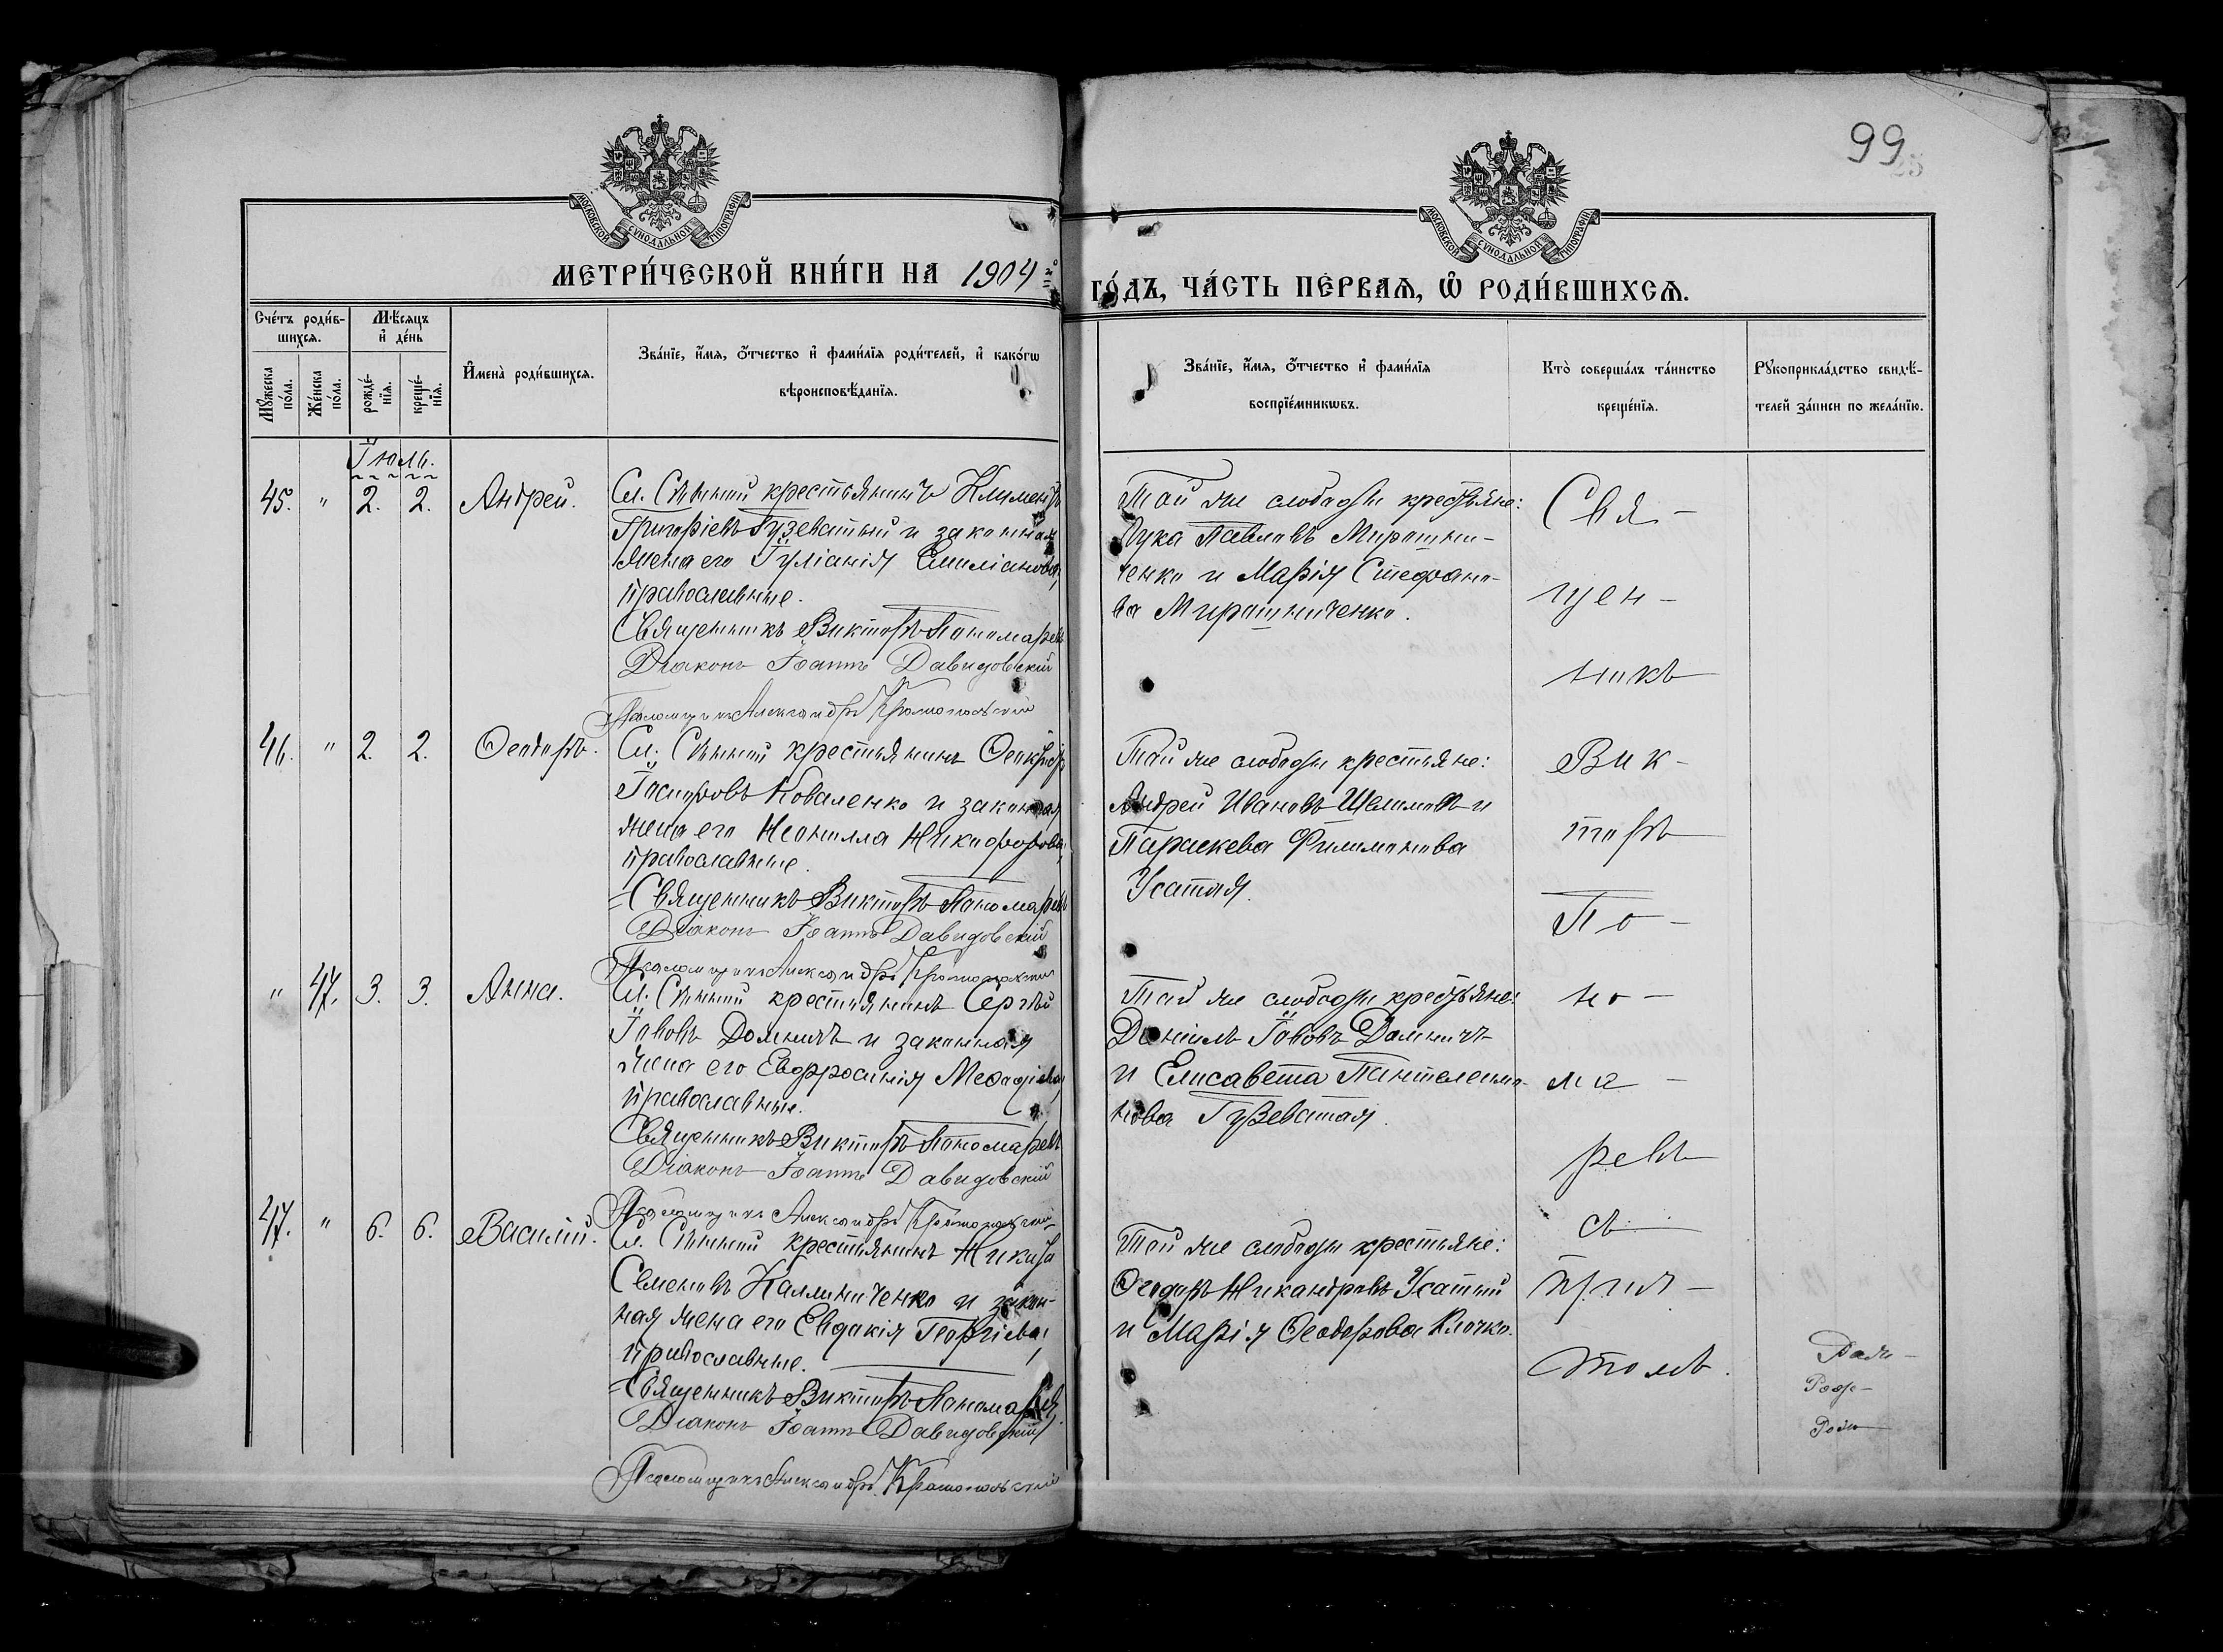 99
МОСКОВСКОЙ СѴНОДАЛЬНОЙ ТИПОГРАФІИ
МОСКОВСКОЙ СѴНОДАЛЬНОЙ ТИПОГРАФІИ
МЕТРИ́ЧЕСКОЙ КНИ́ГИ НА 1904 й
ГО́ДЪ, ЧА́СТЬ ПЕ́РВАѦ, Ѽ РОДИ́ВШИХСѦ.
Сче́тъ роди́в-
шихсѧ.
Мѣ́сѧцъ
и҆ де́нь
Мꙋ́жеска
по́ла.
Же́нска
по́ла.
рожде́-
нїѧ.
креще́-
нїѧ.
И҆мена̀ роди́вшихсѧ.
Зва́нїе, и҆́мѧ, ѻ҆́тчество и҆ фами́лїѧ роди́телей, и҆ како́гѡ
вѣроисповѣ́данїѧ.
Зва́нїе, и҆́мѧ, ѻ҆́тчество и҆ фами́лїѧ
воспрїе́мникѡвъ.
Кто̀ соверша́лъ та́инство
креще́нїѧ.
Рꙋкоприкла́дство свидѣ́-
телей за́писи по жела́нїю.
Іюль.
45. " 2. 2. Андрей.
Сл. Сѣнной крестьянинъ Климентъ
Григоріевъ Гузеватый и законная
жена его Іуліанія Емиліанова,
православные.
Священникъ Викторъ Пономаревъ
Діаконъ Іоаннъ Давидовскій
Псаломщикъ Александръ
Той же слободы крестьяне:
Лука Павловъ Мирошни-
ченко и Марія Стефано-
ва Мирошниченко.
46. " 2. 2. Ѳеодоръ.
Сл. Сѣнной крестьянинъ
Коваленко и законная
жена его Неонилла Никифорова,
православные.
Священникъ Викторъ Пономаревъ
Діаконъ Іоаннъ Давидовскій
Псаломщикъ Александръ
Той же слободы крестьяне:
Андрей Ивановъ и
Параскева Филимонова
Усатая.
" 47. 3. 3. Анна.
Сл. Сѣнной крестьянинъ Сергѣй
Іововъ Домничъ и законная
жена его Евфросинія
православные.
Священникъ Викторъ Пономаревъ
Діаконъ Іоаннъ Давидовскій
Псаломщикъ Александръ
Той же слободы крестьяне:
Даніилъ Іововъ Домничъ
и Елисавета Пантелеимо-
нова Гузеватая.
47. " 6. 6. Василій.
Сл. Сѣнной крестьянинъ Никита
Семеновъ Каллиниченко и закон-
ная жена его Евдокія Георгіева,
православные.
Священникъ Викторъ Пономаревъ
Діаконъ Іоаннъ Давидовскій
Псаломщикъ Александръ
Той же слободы крестьяне:
Ѳеодоръ Никандровъ Усатый
и Марія Ѳеодорова Клочко.
Свя-
щен-
никъ
Вик-
торъ
По-
но-
ма-
ревъ
съ
прич-
томъ.